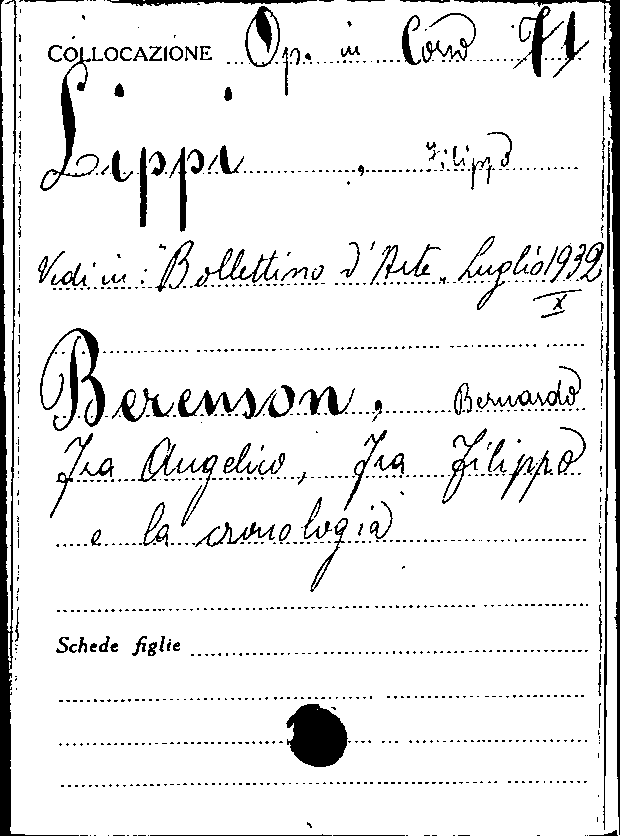 COLLOCAZIONE Op. in Corso 71
Lippi, Filippo
Vedi in: "Bollettino d'Arte" Luglio 1932
X
Berenson, Bernardo
Fra Angelico, Fra Filippo
e la cronologia
Schede figlie